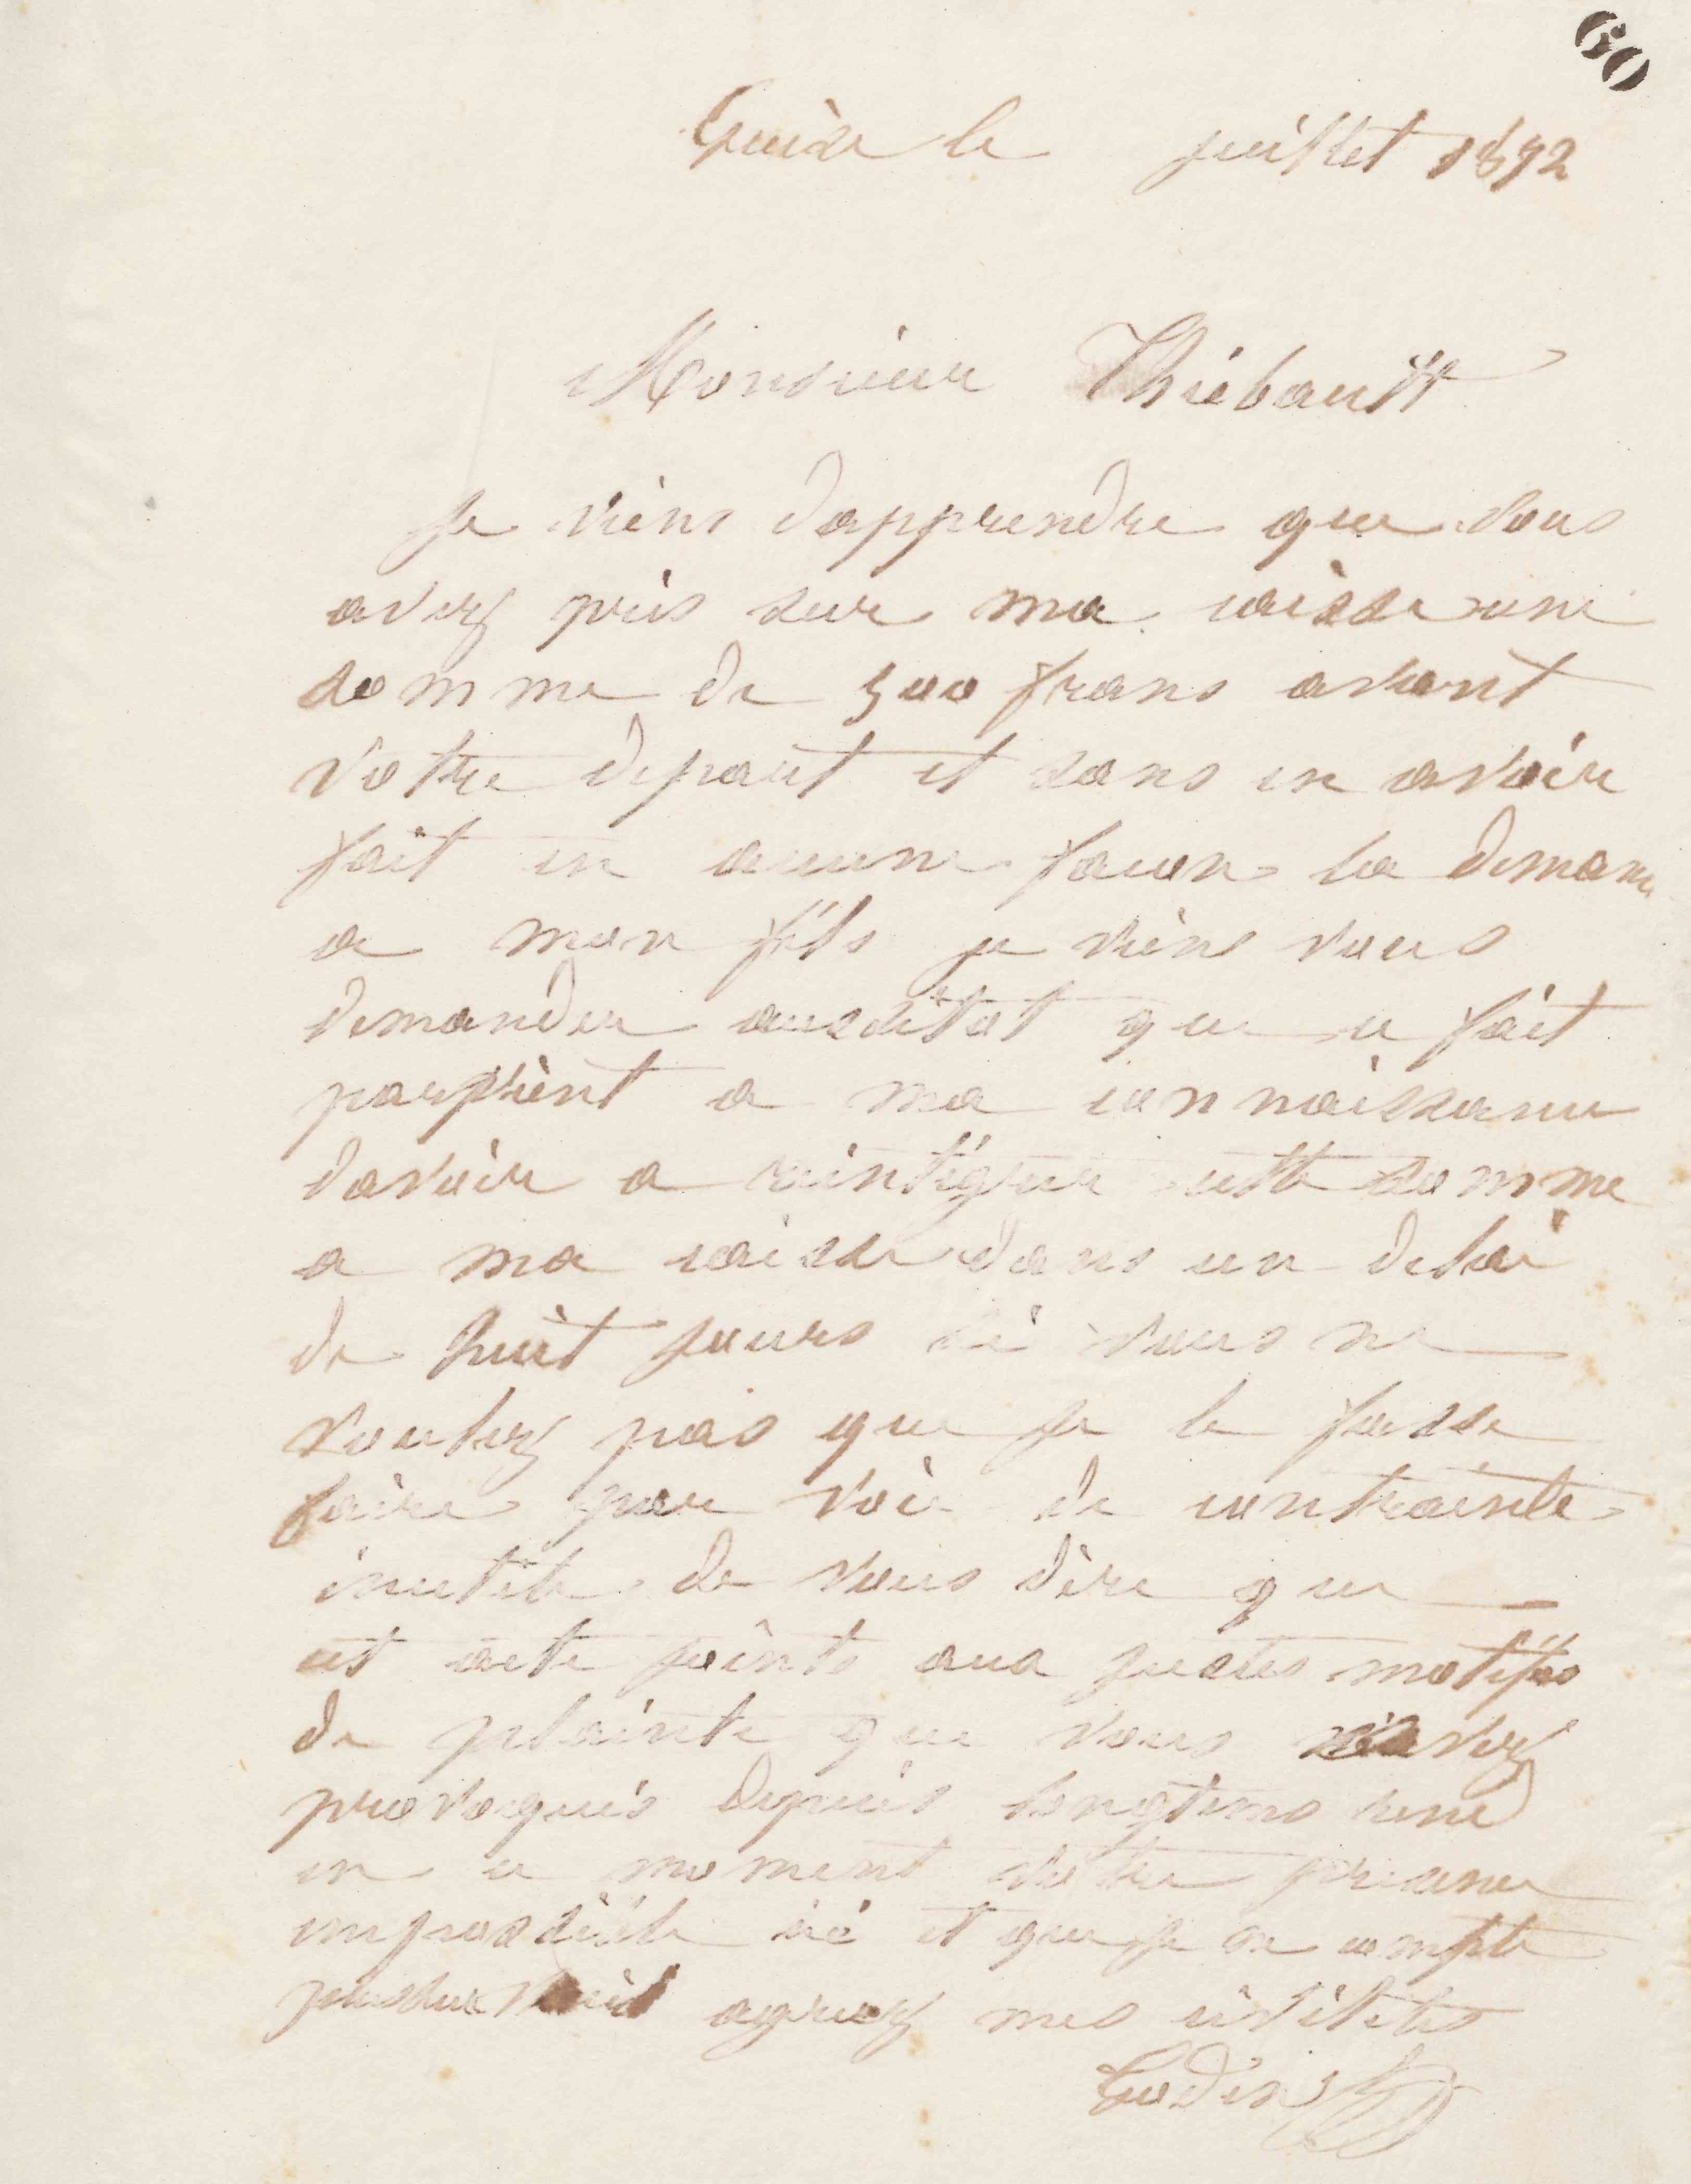 60
Guise le juillet 1872
Monsieur Thiébault
Je viens dapprendre que vous
avez pris sur ma caisse une
somme de 500 frans avant
votre depart et sans en avoir
fait en aucune facon la deman
a mon fils je viens vous
demander aussitot que ce fait
parvient a ma connaissance
davoir a reintégrer cette somme
a ma caisse dans un delai
de huit jours si vous ne
voulez pas que je le fasse
faire par voie de contrainte
inutile de vous dire que
cet acte joints aux justes motifs
de plainte que vous avez
provoqués depuis longtems rend
en ce moment votre présence
impossible ici et que je ne compte
plus sur vous agreez mes civilités
Godin